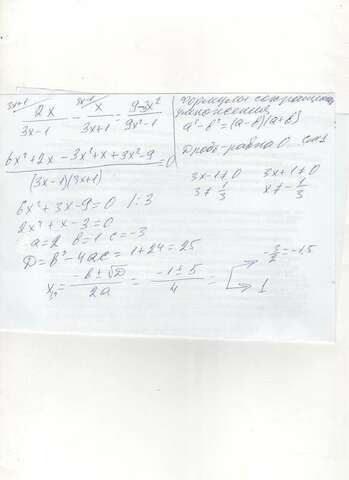 3x+1 3x-1
2x/(3x-1) - x/(3x+1) = (9-3x²)/(9x²-1)
Формулы сокращенного
умножения
a²-b²=(a-b)(a+b)
Дробь равна 0
(6x²+2x-3x²+x+3x²-9)/((3x-1)(3x+1))=0
3x-1≠0 3x+1≠0
3≠1/3 x≠-1/3
6x²+3x-9=0 /:3
2x²+x-3=0
a=2 b=1 c=-3
D=b²-4ac=1+24=25
x₁,₂=(-b±√D)/(2a)=(-1±5)/4= -3/2=-1,5
1